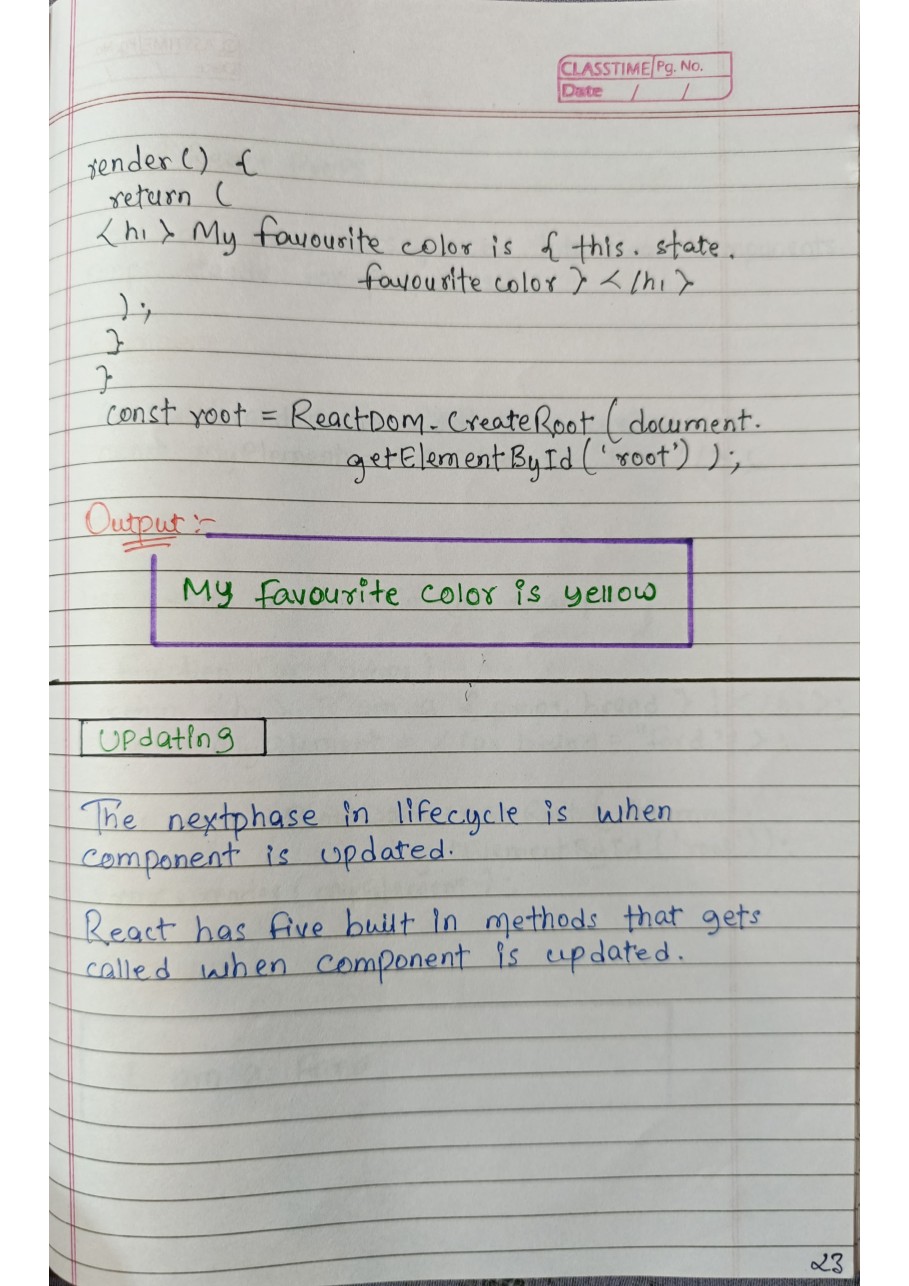 CLASSTIME Pg. No.
Date / /
render() {
return (
<h1> My favourite color is { this. state.
favourite color } </h1>
);
}
}
const root = ReactDOM. CreateRoot ( document.
getElementById ('root') );
Output :-
My favourite color is yellow
Updating
The nextphase in lifecycle is when
component is updated.
React has five built in methods that gets
called when component is updated.
23